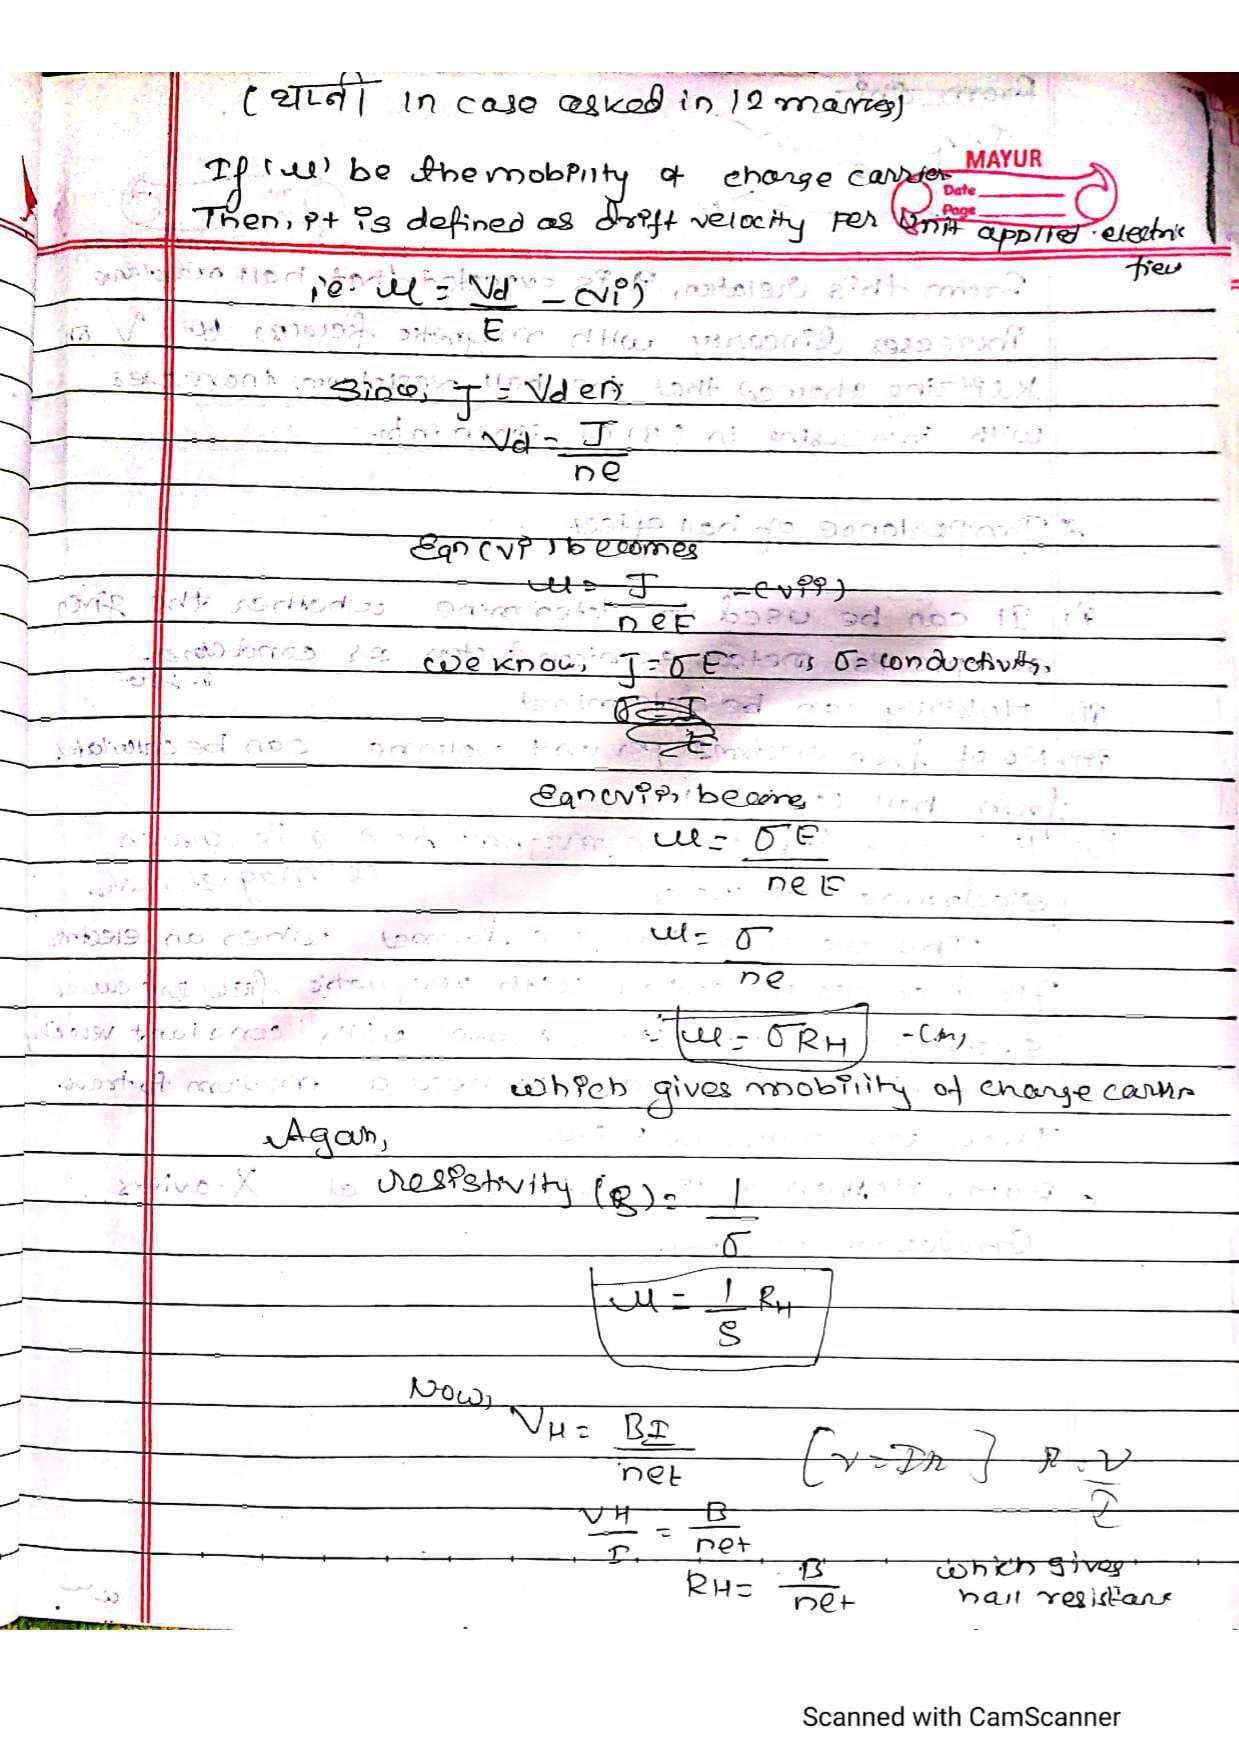 ( थाल्नी In case asked in 12 marks)
MAYUR
Date
Page
If 'μ' be the mobility of charge carrier
Then, it is defined as drift velocity per unit applied electric
field
i.e. μ = Vd/E - (vi)
Since, J = Vd en
Vd = J/ne
Eqn (vi) becomes
μ = J/neE - (vii)
we know, J = σE σ = conductivity.
Eqn (vii) becomes
μ = σE/neE
μ = σ/ne
μ = σRH
which gives mobility of charge carrier
Again,
resistivity (ρ) = 1/σ
μ = 1/ρ RH
Now,
VH = BI/net [V = IR] R = V/I
VH/I = B/net
RH = B/net which gives
hall resistance
Scanned with CamScanner